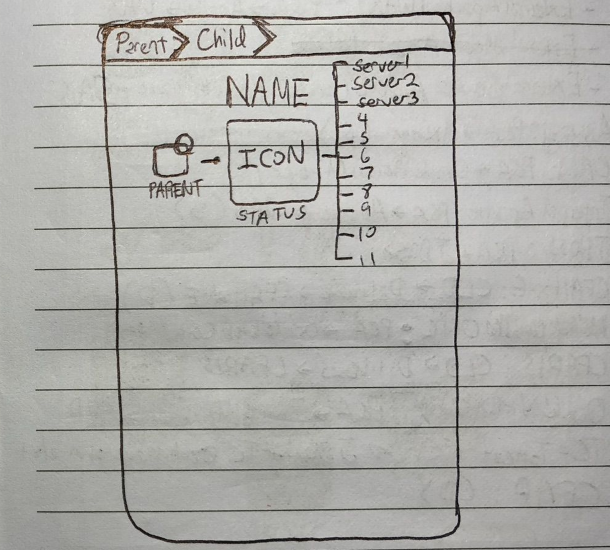 Parent Child
NAME
ICON
STATUS
PARENT
server1
server2
server3
4
5
6
7
8
9
10
11